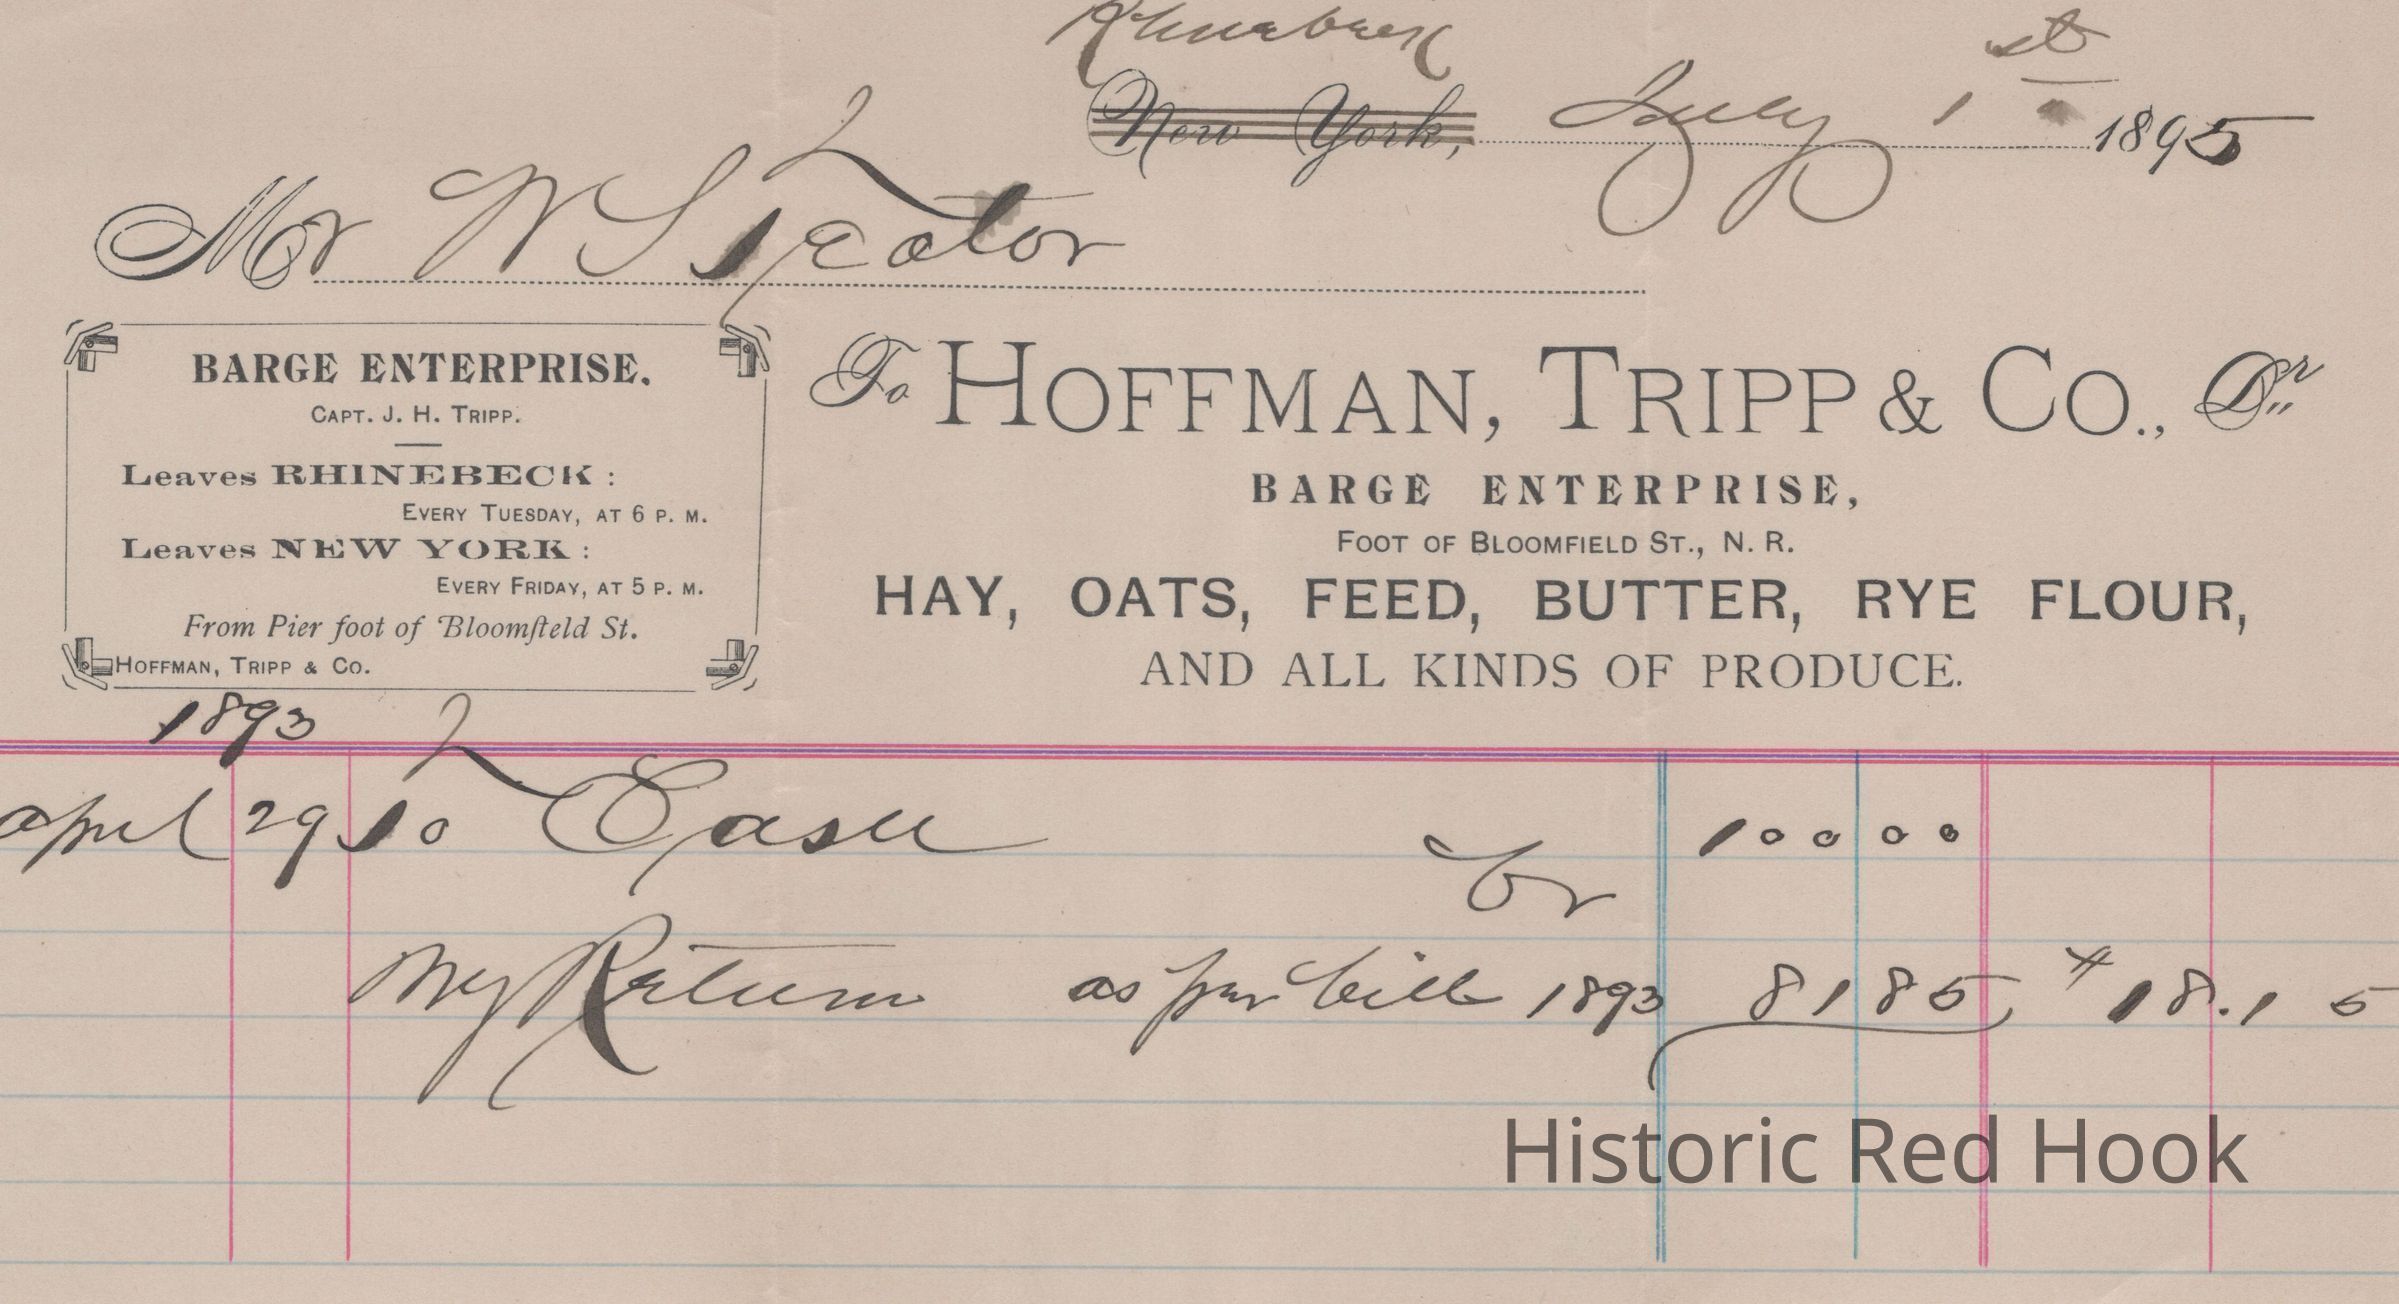 Rhinebeck
New York, July 1st 1895
Mr W S Teator
BARGE ENTERPRISE.
CAPT. J. H. TRIPP.
Leaves RHINEBECK:
EVERY TUESDAY, AT 6 P. M.
Leaves NEW YORK:
EVERY FRIDAY, AT 5 P. M.
From Pier foot of Bloomfield St.
HOFFMAN, TRIPP & CO.
To HOFFMAN, TRIPP & CO., Dr.
BARGE ENTERPRISE,
FOOT OF BLOOMFIELD ST., N. R.
HAY, OATS, FEED, BUTTER, RYE FLOUR,
AND ALL KINDS OF PRODUCE.
1893
April 29 To Cash 100 00
Cr
By Return as per bill 1893 81 85 $18.15
Historic Red Hook